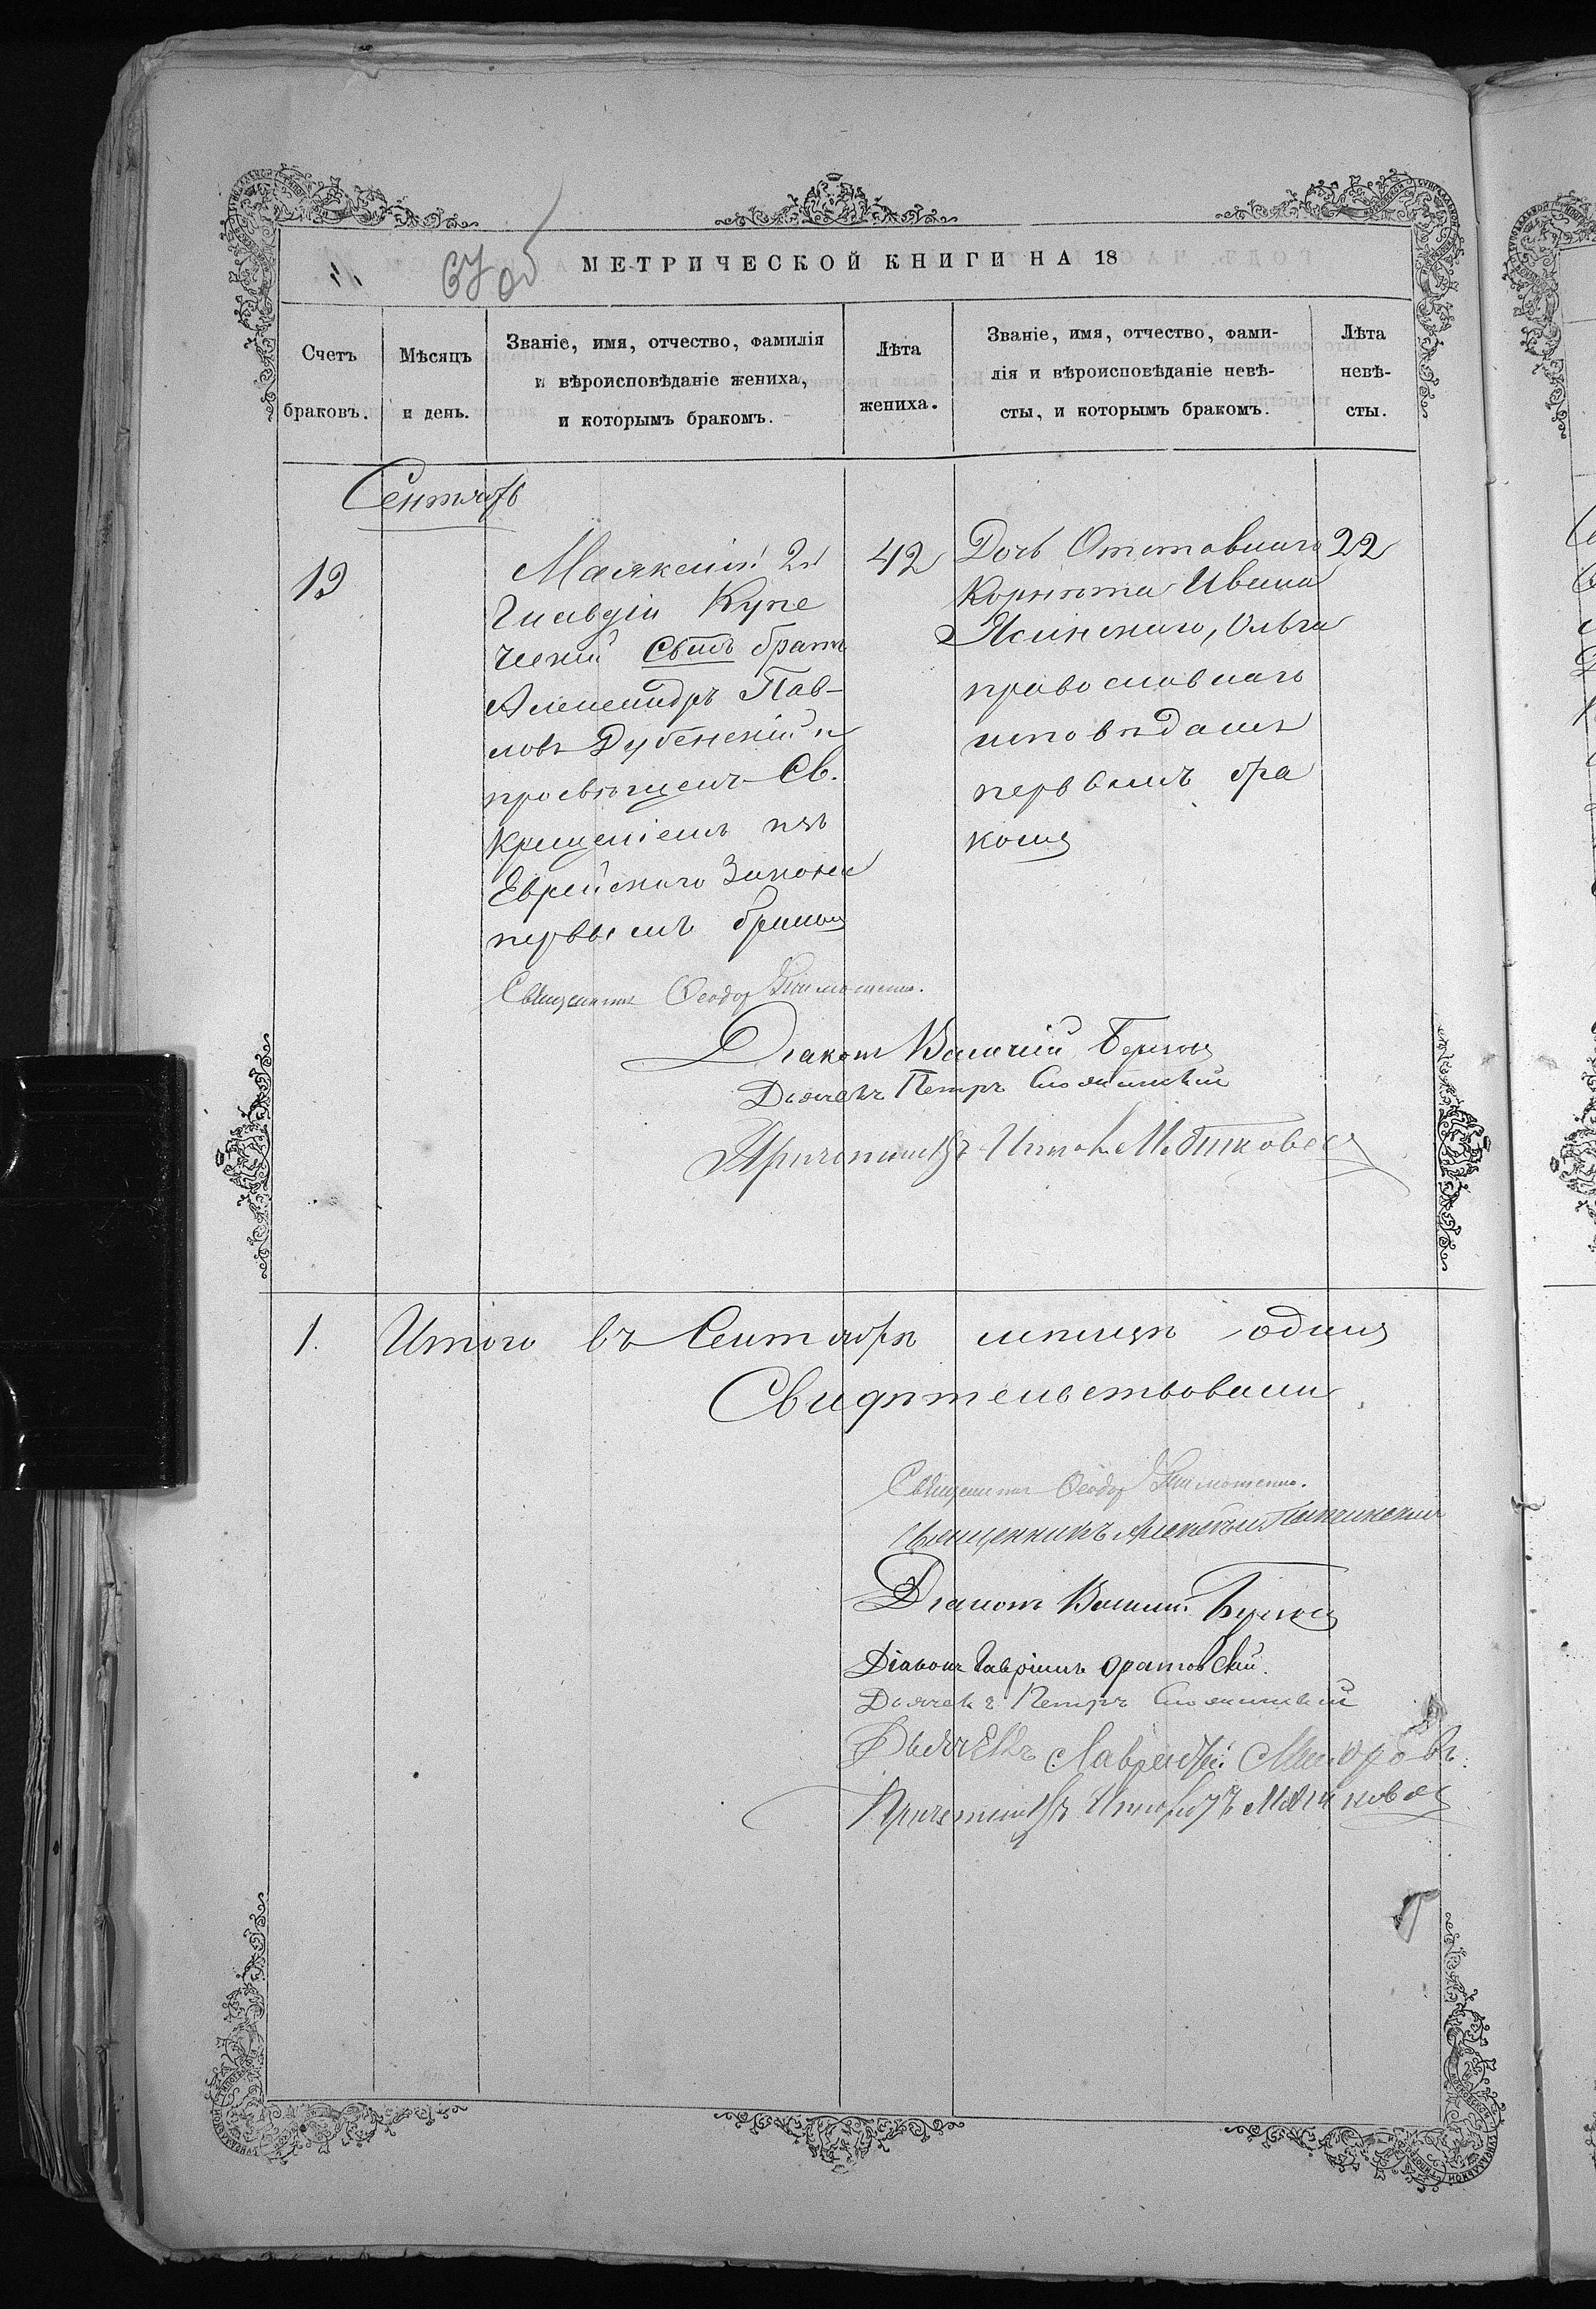 67 об
МЕТРИЧЕСКОЙ КНИГИ НА 18
Счетъ браковъ.
Мѣсяцъ и день.
Званіе, имя, отчество, фамилія
и вѣроисповѣданіе жениха,
и которымъ бракомъ.
Лѣта жениха.
Званіе, имя, отчество, фами-
лія и вѣроисповѣданіе невѣ-
сты, и которымъ бракомъ.
Лѣта невѣ-
сты.
Сентябрь
19
Маякскій 2й
Гильдіи Купе
ческій братъ
Александръ Пав-
ловъ Дубенскій
просвѣщенъ Св.
Крещеніемъ изъ
Еврейскаго Закона
первымъ бракомъ
42
Дочь Отставнаго
Корнета Ивана
Ясинскаго, Ольга
православнаго
исповѣданія
первымъ бра
комъ
22
Священникъ Ѳеодоръ
Діаконъ Василій
Дьячекъ Петръ
1. Итого въ Сентябрѣ мѣсяцѣ одинъ
Свидѣтельствовали
Священникъ Ѳеодоръ
Священникъ Алексѣй
Діаконъ Василій
Діаконъ Гавріилъ Оратовскій.
Дьячекъ Петръ
Дьячекъ Лаврентій